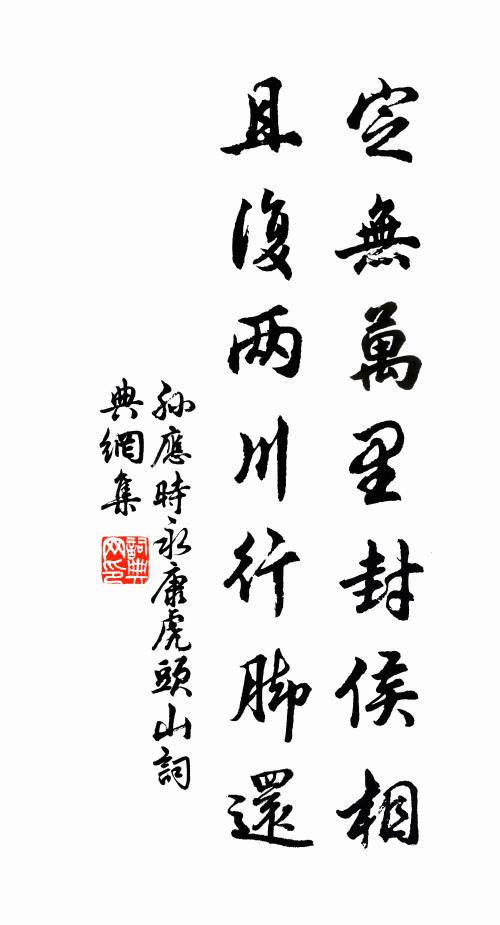 定無萬里封侯相
且復兩川行腳還
孫應時永康虎頭山詞
典網集
詞典網印